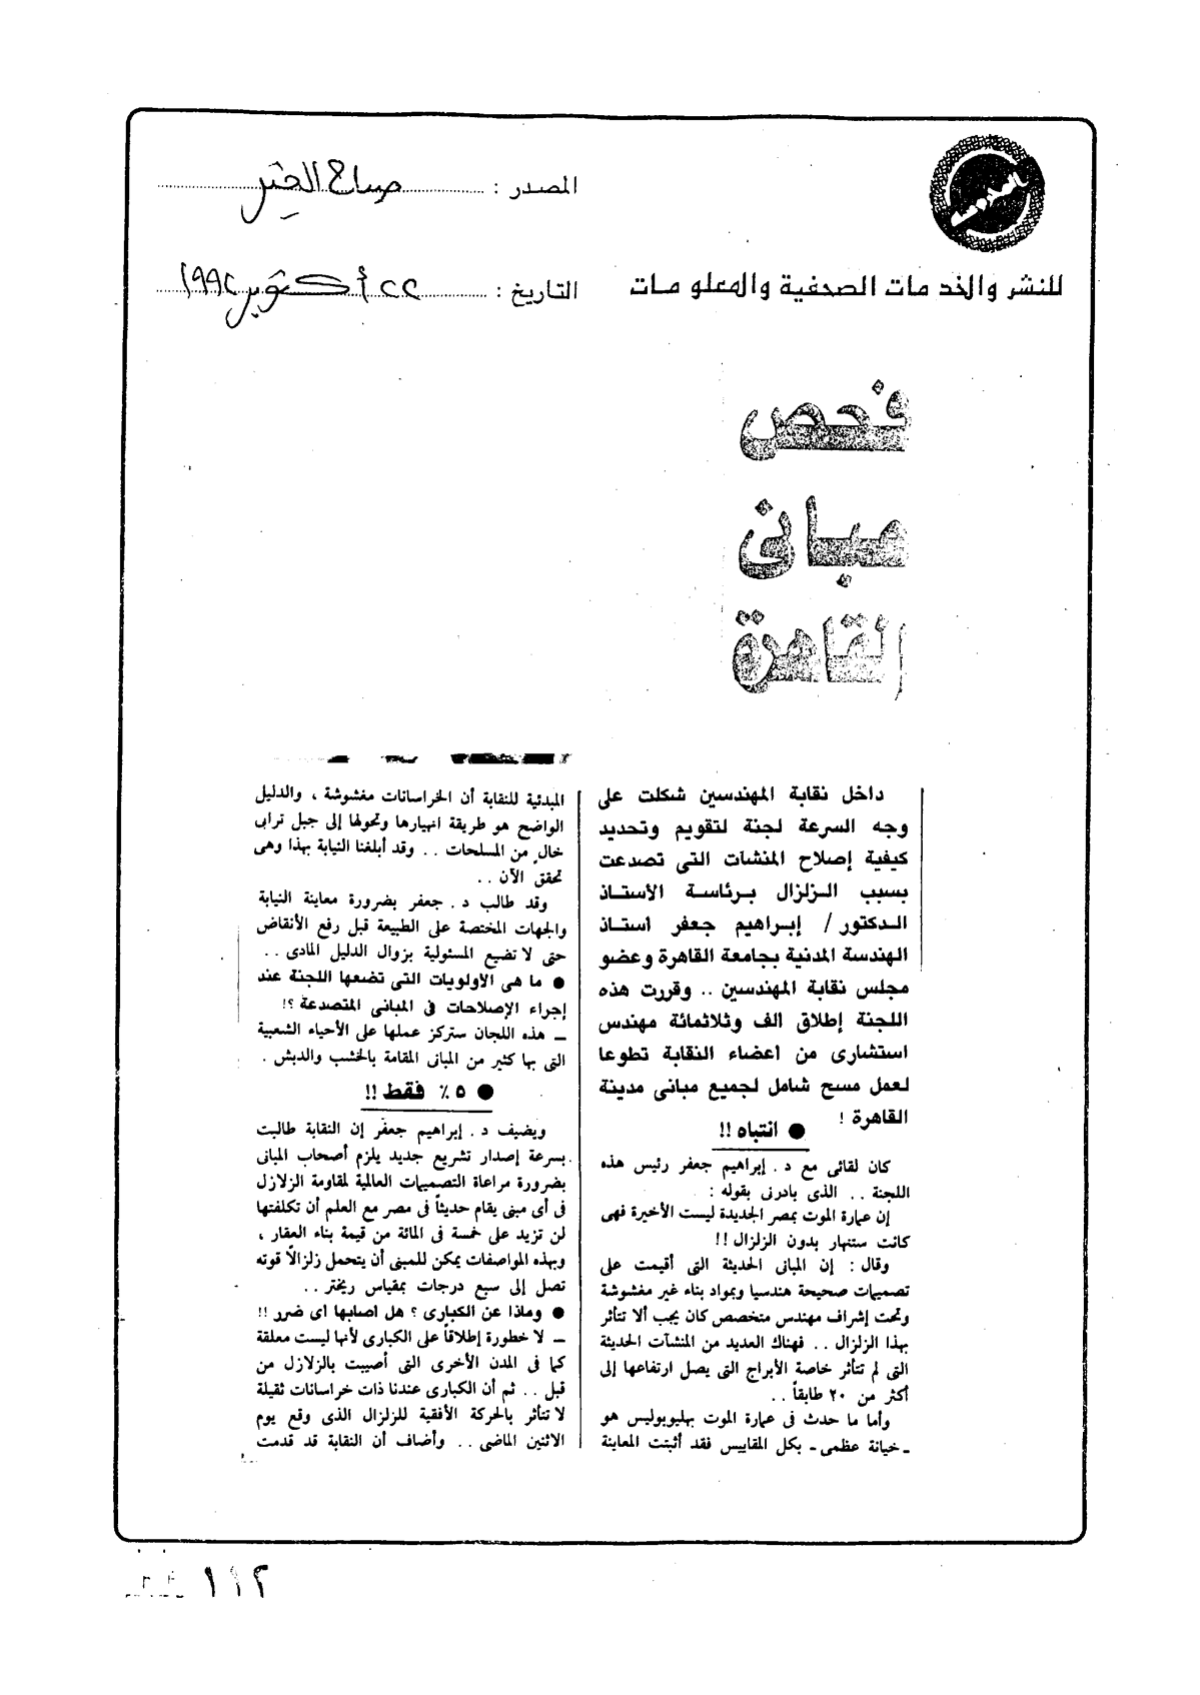 المصدر : صباح الخير
للنشر والخدمات الصحفية والمعلومات
التاريخ : ٢٢ أكتوبر ١٩٩٢
فحص
مبانى
القاهرة
داخل نقابة المهندسين شكلت على
وجه السرعة لجنة لتقويم وتحديد
كيفية إصلاح المنشات التى تصدعت
بسبب الزلزال برئاسة الاستاذ
الدكتور / إبراهيم جعفر استاذ
الهندسة المدنية بجامعة القاهرة وعضو
مجلس نقابة المهندسين .. وقررت هذه
اللجنة إطلاق الف وثلاثمائة مهندس
استشارى من اعضاء النقابة تطوعا
لعمل مسح شامل لجميع مبانى مدينة
القاهرة !
● انتباه !!
كان لقائى مع د . إبراهيم جعفر رئيس هذه
اللجنة .. الذى بادرنى بقوله :
إن عمارة الموت بمصر الجديدة ليست الأخيرة فهى
كانت ستنهار بدون الزلزال !!
وقال : إن المبانى الحديثة التى أقيمت على
تصميمات صحيحة هندسيا وبمواد بناء غير مغشوشة
وتحت إشراف مهندس متخصص كان يجب ألا تتأثر
بهذا الزلزال .. فهناك العديد من المنشآت الحديثة
التى لم تتأثر خاصة الأبراج التى يصل ارتفاعها إلى
أكثر من ٢٠ طابقاً ..
وأما ما حدث فى عمارة الموت بهليوبوليس هو
- خيانة عظمى - بكل المقاييس فقد أثبتت المعاينة
المبدئية للنقابة أن الخراسانات مغشوشة ، والدليل
الواضح هو طريقة انهيارها وتحولها إلى جبل ترابى
خالٍ من المسلحات .. وقد أبلغنا النيابة بهذا وهى
تحقق الآن ..
وقد طالب د . جعفر بضرورة معاينة النيابة
والجهات المختصة على الطبيعة قبل رفع الأنقاض
حتى لا تضيع المسئولية بزوال الدليل المادى ..
● ما هى الاولويات التى تضعها اللجنة عند
إجراء الإصلاحات فى المبانى المتصدعة ؟!
ـ هذه اللجان ستركز عملها على الأحياء الشعبية
التى بها كثير من المبانى المقامة بالخشب والدبش .
● ٥ ٪ فقط !!
ويضيف د . إبراهيم جعفر إن النقابة طالبت
بسرعة إصدار تشريع جديد يلزم أصحاب المبانى
بضرورة مراعاة التصميمات العالمية لمقاومة الزلازل
فى أى مبنى يقام حديثاً فى مصر مع العلم أن تكلفتها
لن تزيد على خمسة فى المائة من قيمة بناء العقار ،
وبهذه المواصفات يمكن للمبنى أن يتحمل زلزالاً قوته
تصل إلى سبع درجات بمقياس ريختر ..
● وماذا عن الكبارى ؟ هل اصابها اى ضرر !!
ـ لا خطورة إطلاقاً على الكبارى لأنها ليست معلقة
كما فى المدن الأخرى التى أصيبت بالزلازل من
قبل .. ثم أن الكبارى عندنا ذات خراسانات ثقيلة
لا تتأثر بالحركة الأفقية للزلزال الذى وقع يوم
الاثنين الماضى .. وأضاف أن النقابة قد قدمت